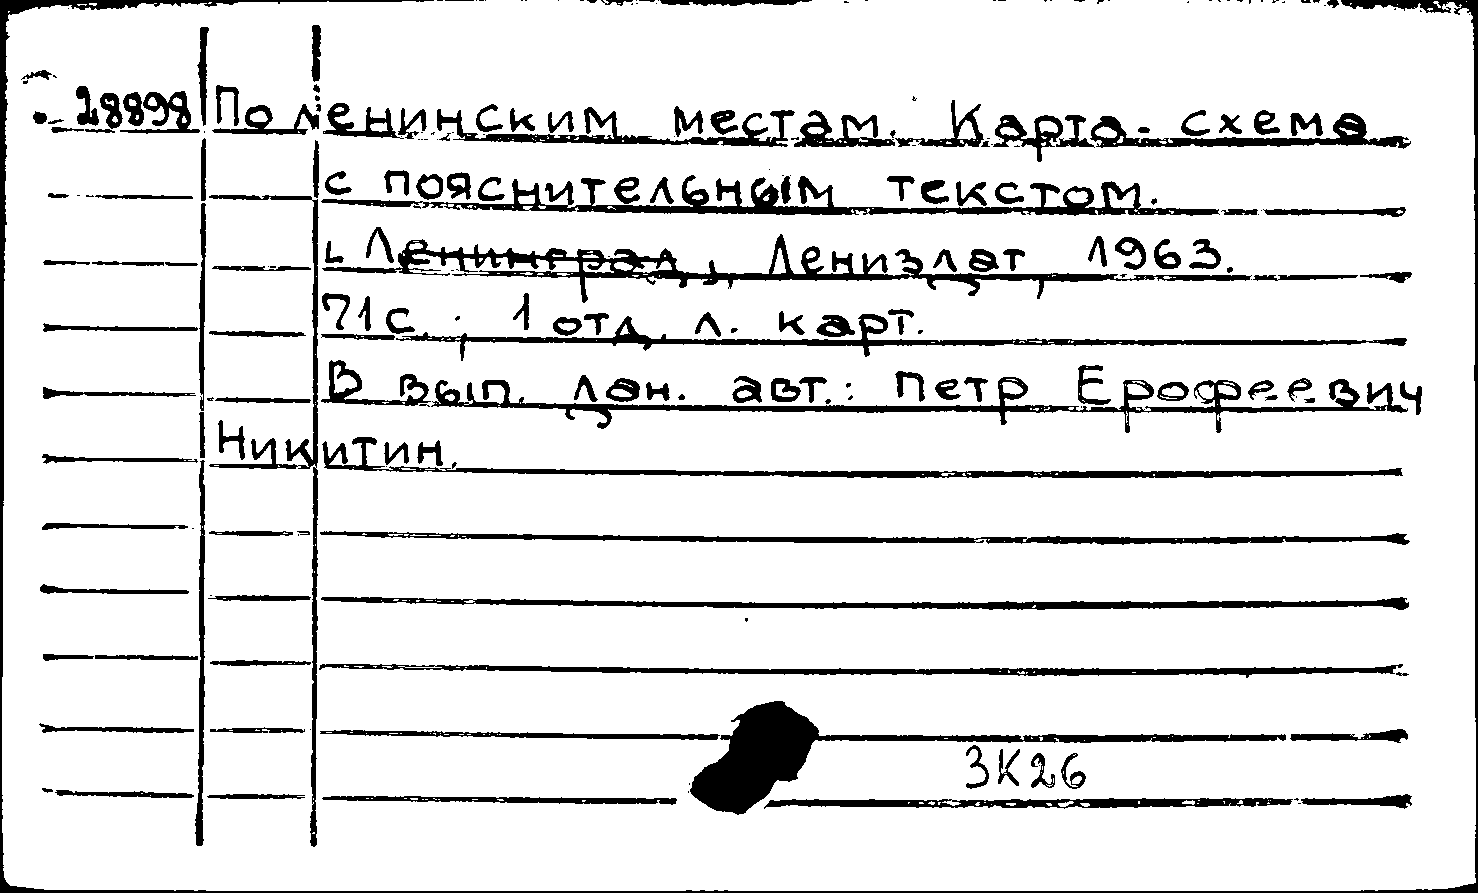 28898 По ленинским местам. Карта-схема
с пояснительным текстом.
Ленинград, Лениздат, 1963.
71 с.; 1 отд. л. карт.
В вып. дан. авт.: Петр Ерофеевич
Никитин.
3К26